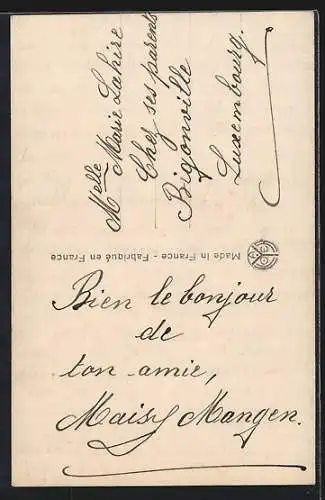 Melle Marie Lahire
Chez ses parents
Bigonville
Luxembourg.
Made in France - Fabriqué en France
Bien le bonjour
de
ton amie,
Maisy Mangen.